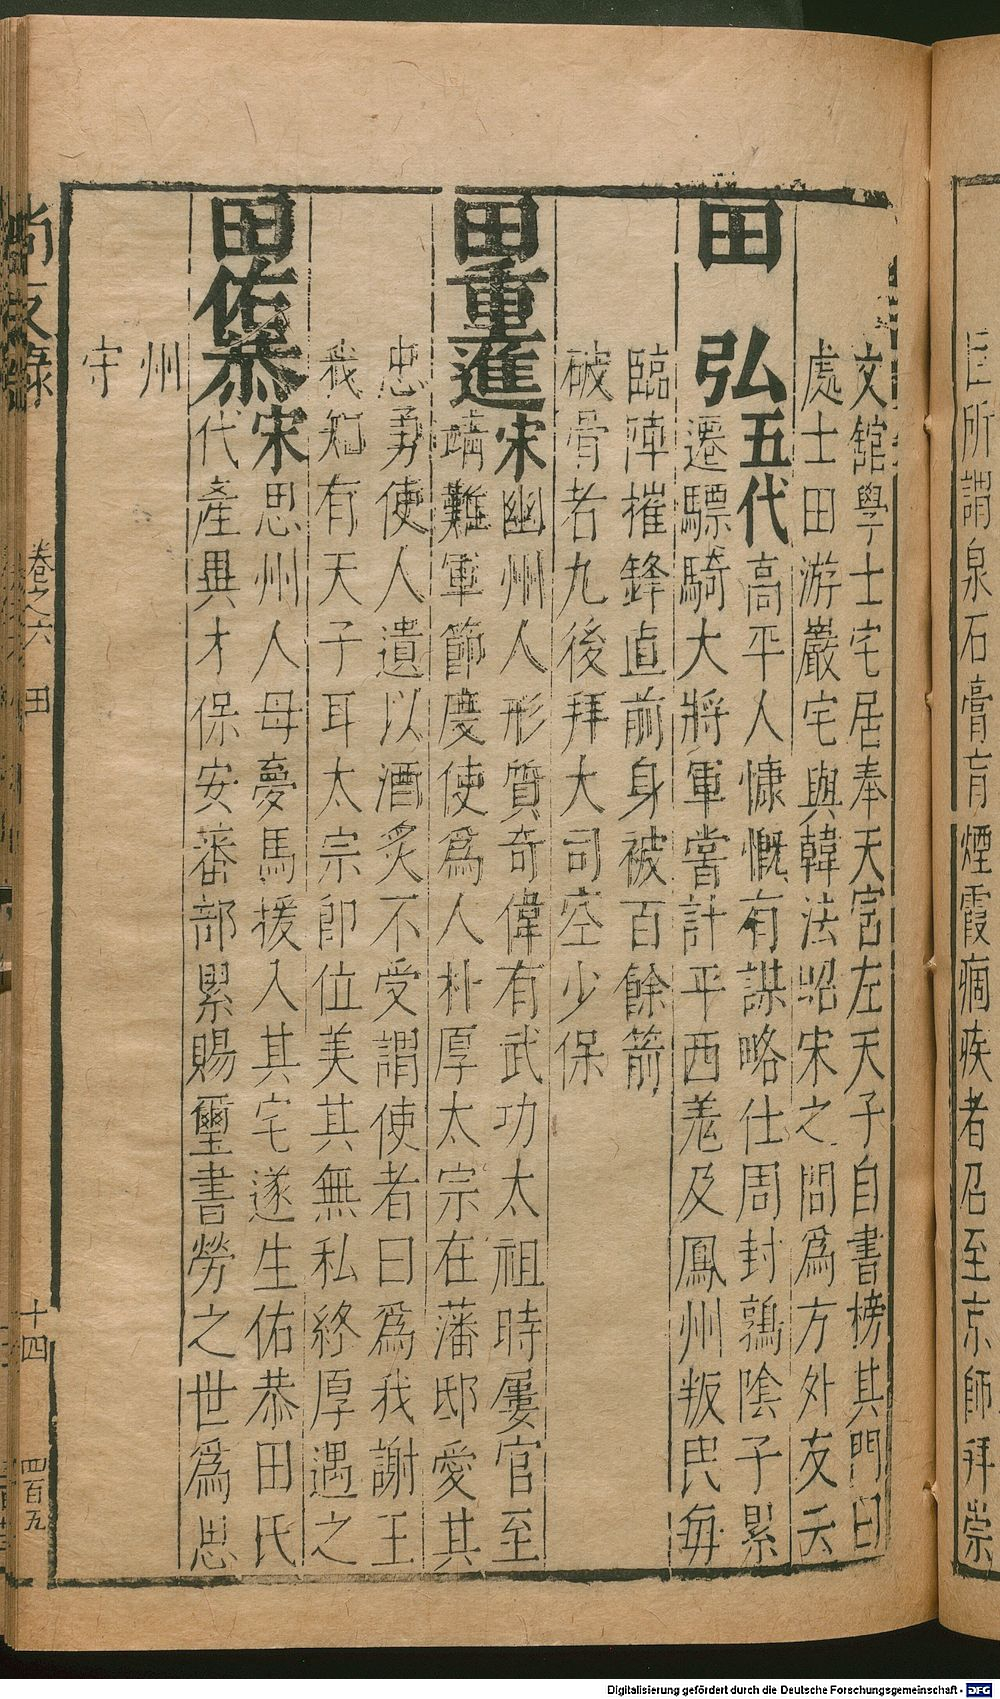 巨所謂泉石膏肓煙霞痼疾者召至京師拜崇
文舘學士宅居奉天宮左天子自書榜其門曰
處士田游巖宅與韓法昭宋之問爲方外友云
田弘五代高平人慷慨有謀略仕周封鶉陰子累
遷驃騎大將軍嘗計平西羗及鳳州叛民每
臨陣摧鋒直前身被百餘箭
破骨者九後拜大司空少保
田重進宋幽州人形質奇偉有武功太祖時屢官至
靖難軍節度使爲人朴厚太宗在藩邸愛其
忠勇使人遺以酒炙不受謂使者曰爲我謝王
我知有天子耳太宗卽位美其無私終厚遇之
田佑恭宋思州人母夢馬援入其宅遂生佑恭田氏
代產異才保安蕃部累賜璽書勞之世爲思
州
守
尚友錄 卷之六 田 十四 四百九
Digitalisierung gefördert durch die Deutsche Forschungsgemeinschaft - DFG